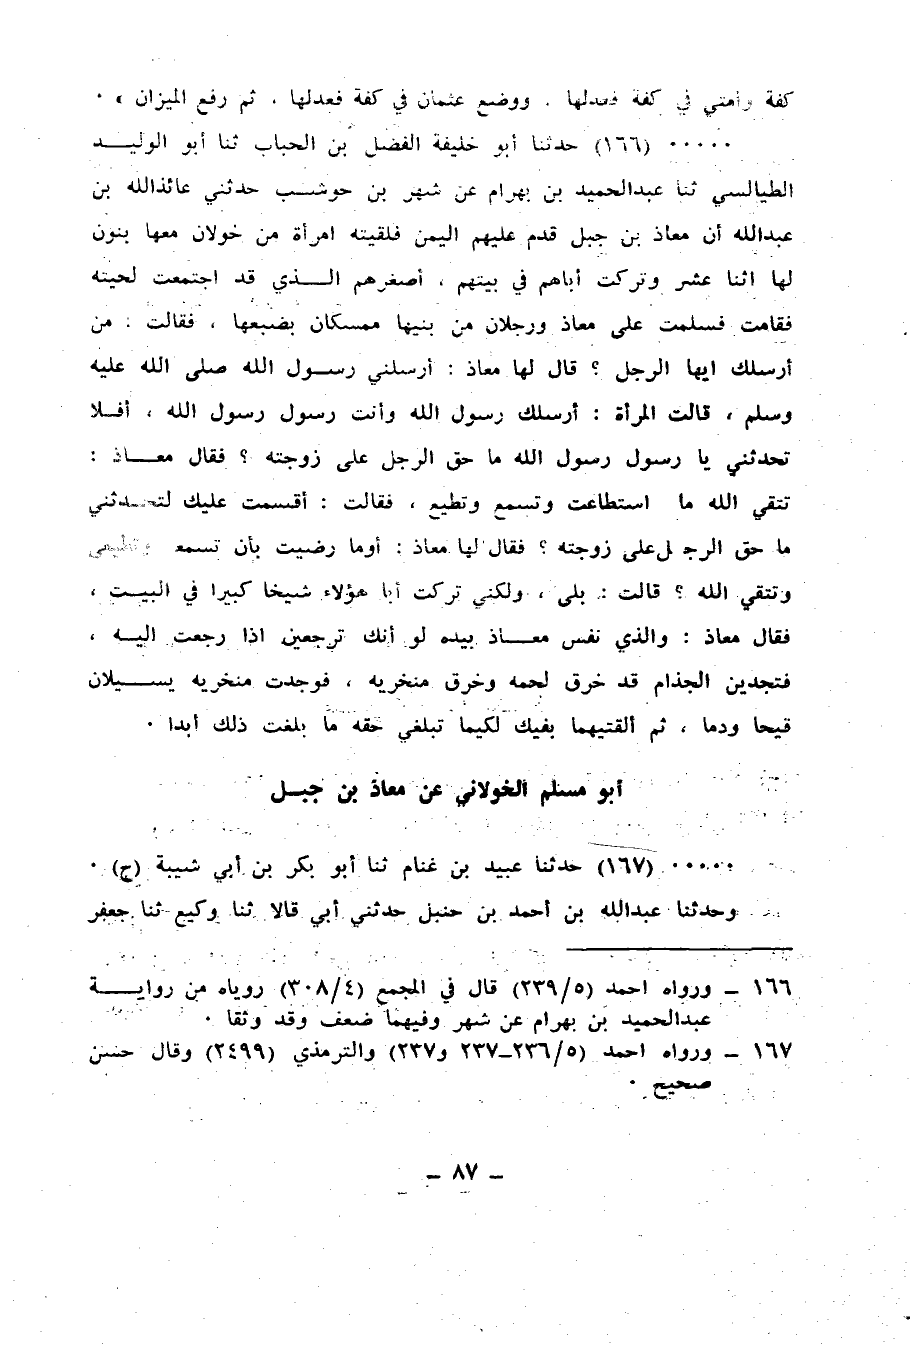 كفة وأمتي في كفة فعدلها . ووضع عثمان في كفة فعدلها ، ثم رفع الميزان » ٠
٠٠٠٠٠ (١٦٦) حدثنا أبو خليفة الفضل بن الحباب ثنا أبو الوليد
الطيالسي ثنا عبدالحميد بن بهرام عن شهر بن حوشب حدثني عائذالله بن
عبدالله أن معاذ بن جبل قدم عليهم اليمن فلقيته امرأة من خولان معها بنون
لها اثنا عشر وتركت أباهم في بيتهم ، أصغرهم الذي قد اجتمعت لحيته
فقامت فسلمت على معاذ ورجلان من بنيها ممسكان بضبعها ، فقالت : من
أرسلك ايها الرجل ؟ قال لها معاذ : أرسلني رسول الله صلى الله عليه
وسلم ، قالت المرأة : أرسلك رسول الله وأنت رسول رسول الله ، أفلا
تحدثني يا رسول رسول الله ما حق الرجل على زوجته ؟ فقال معاذ :
تتقي الله ما استطاعت وتسمع وتطيع ، فقالت : أقسمت عليك لتحدثني
ما حق الرجل على زوجته ؟ فقال لها معاذ : أوما رضيت بأن تسمع وتطيعي
وتتقي الله ؟ قالت : بلى ، ولكني تركت أبا هؤلاء شيخا كبيرا في البيت ،
فقال معاذ : والذي نفس معاذ بيده لو أنك ترجعين اذا رجعت اليه ،
فتجدين الجذام قد خرق لحمه وخرق منخريه ، فوجدت منخريه يسيلان
قيحا ودما ، ثم ألقتيهما بفيك لكيما تبلغي حقه ما بلغت ذلك أبدا ٠
أبو مسلم الخولاني عن معاذ بن جبل
٠٠٠٠٠ (١٦٧) حدثنا عبيد بن غنام ثنا أبو بكر بن أبي شيبة (ح) ٠
وحدثنا عبدالله بن أحمد بن حنبل حدثني أبي قالا ثنا وكيع ثنا جعفر
١٦٦ ــ ورواه احمد (٢٣٩/٥) قال في المجمع (٣٠٨/٤) روياه من رواية
عبدالحميد بن بهرام عن شهر وفيهما ضعف وقد وثقا ٠
١٦٧ ــ ورواه احمد (٢٣٦/٥ــ٢٣٧ و٢٣٧) والترمذي (٢٤٩٩) وقال حسن
صحيح ٠
ــ ٨٧ ــ